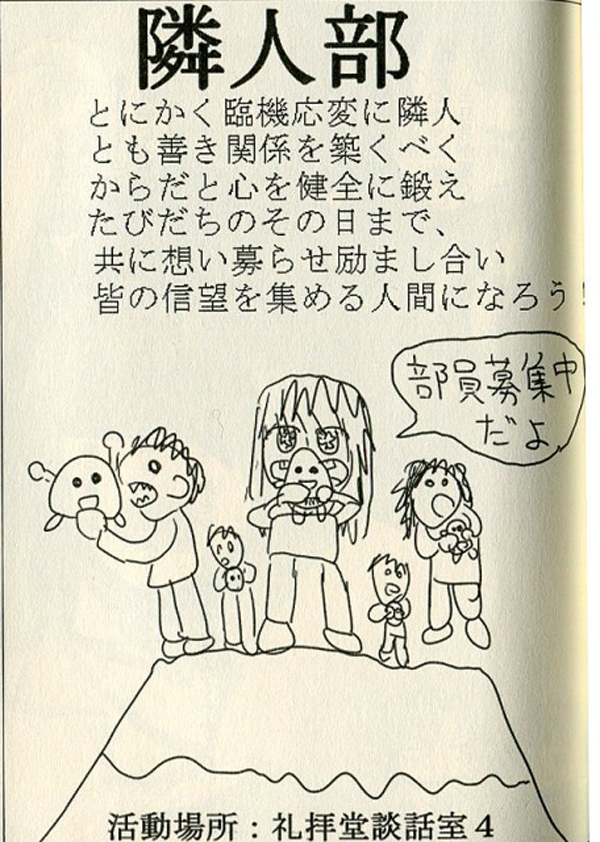 隣人部
とにかく臨機応変に隣人
とも善き関係を築くべく
からだと心を健全に鍛え
たびだちのその日まで、
共に想い募らせ励まし合い
皆の信望を集める人間になろう！
部員募集中
だよ
活動場所：礼拝堂談話室４